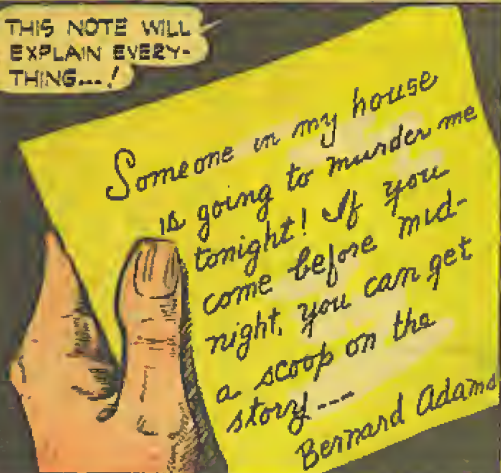 THIS NOTE WILL
EXPLAIN EVERY-
THING...!
Someone in my house
is going to murder me
tonight! If you
come before mid-
night, you can get
a scoop on the
story---
Bernard Adams